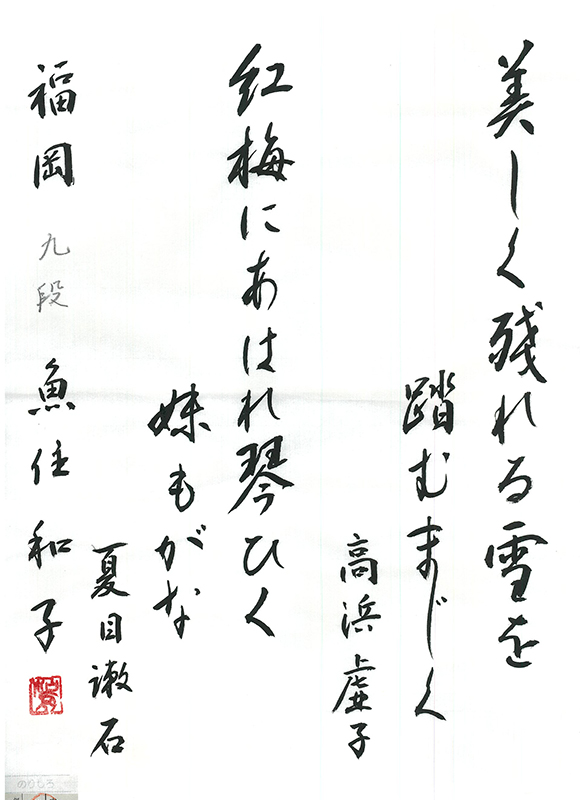 美しく残れる雪を
踏むまじく
高浜虚子
紅梅にあはれ琴ひく
妹もがな
夏目漱石
福岡 九段 魚住和子
のりしろ